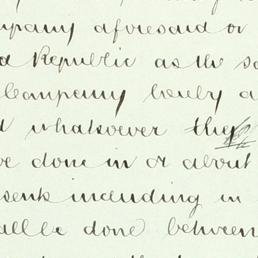 mpany aforesaid or
d Republic as the sa
Company hereby a
d whatsoever they
ve done in or about
sent including in
all be done between